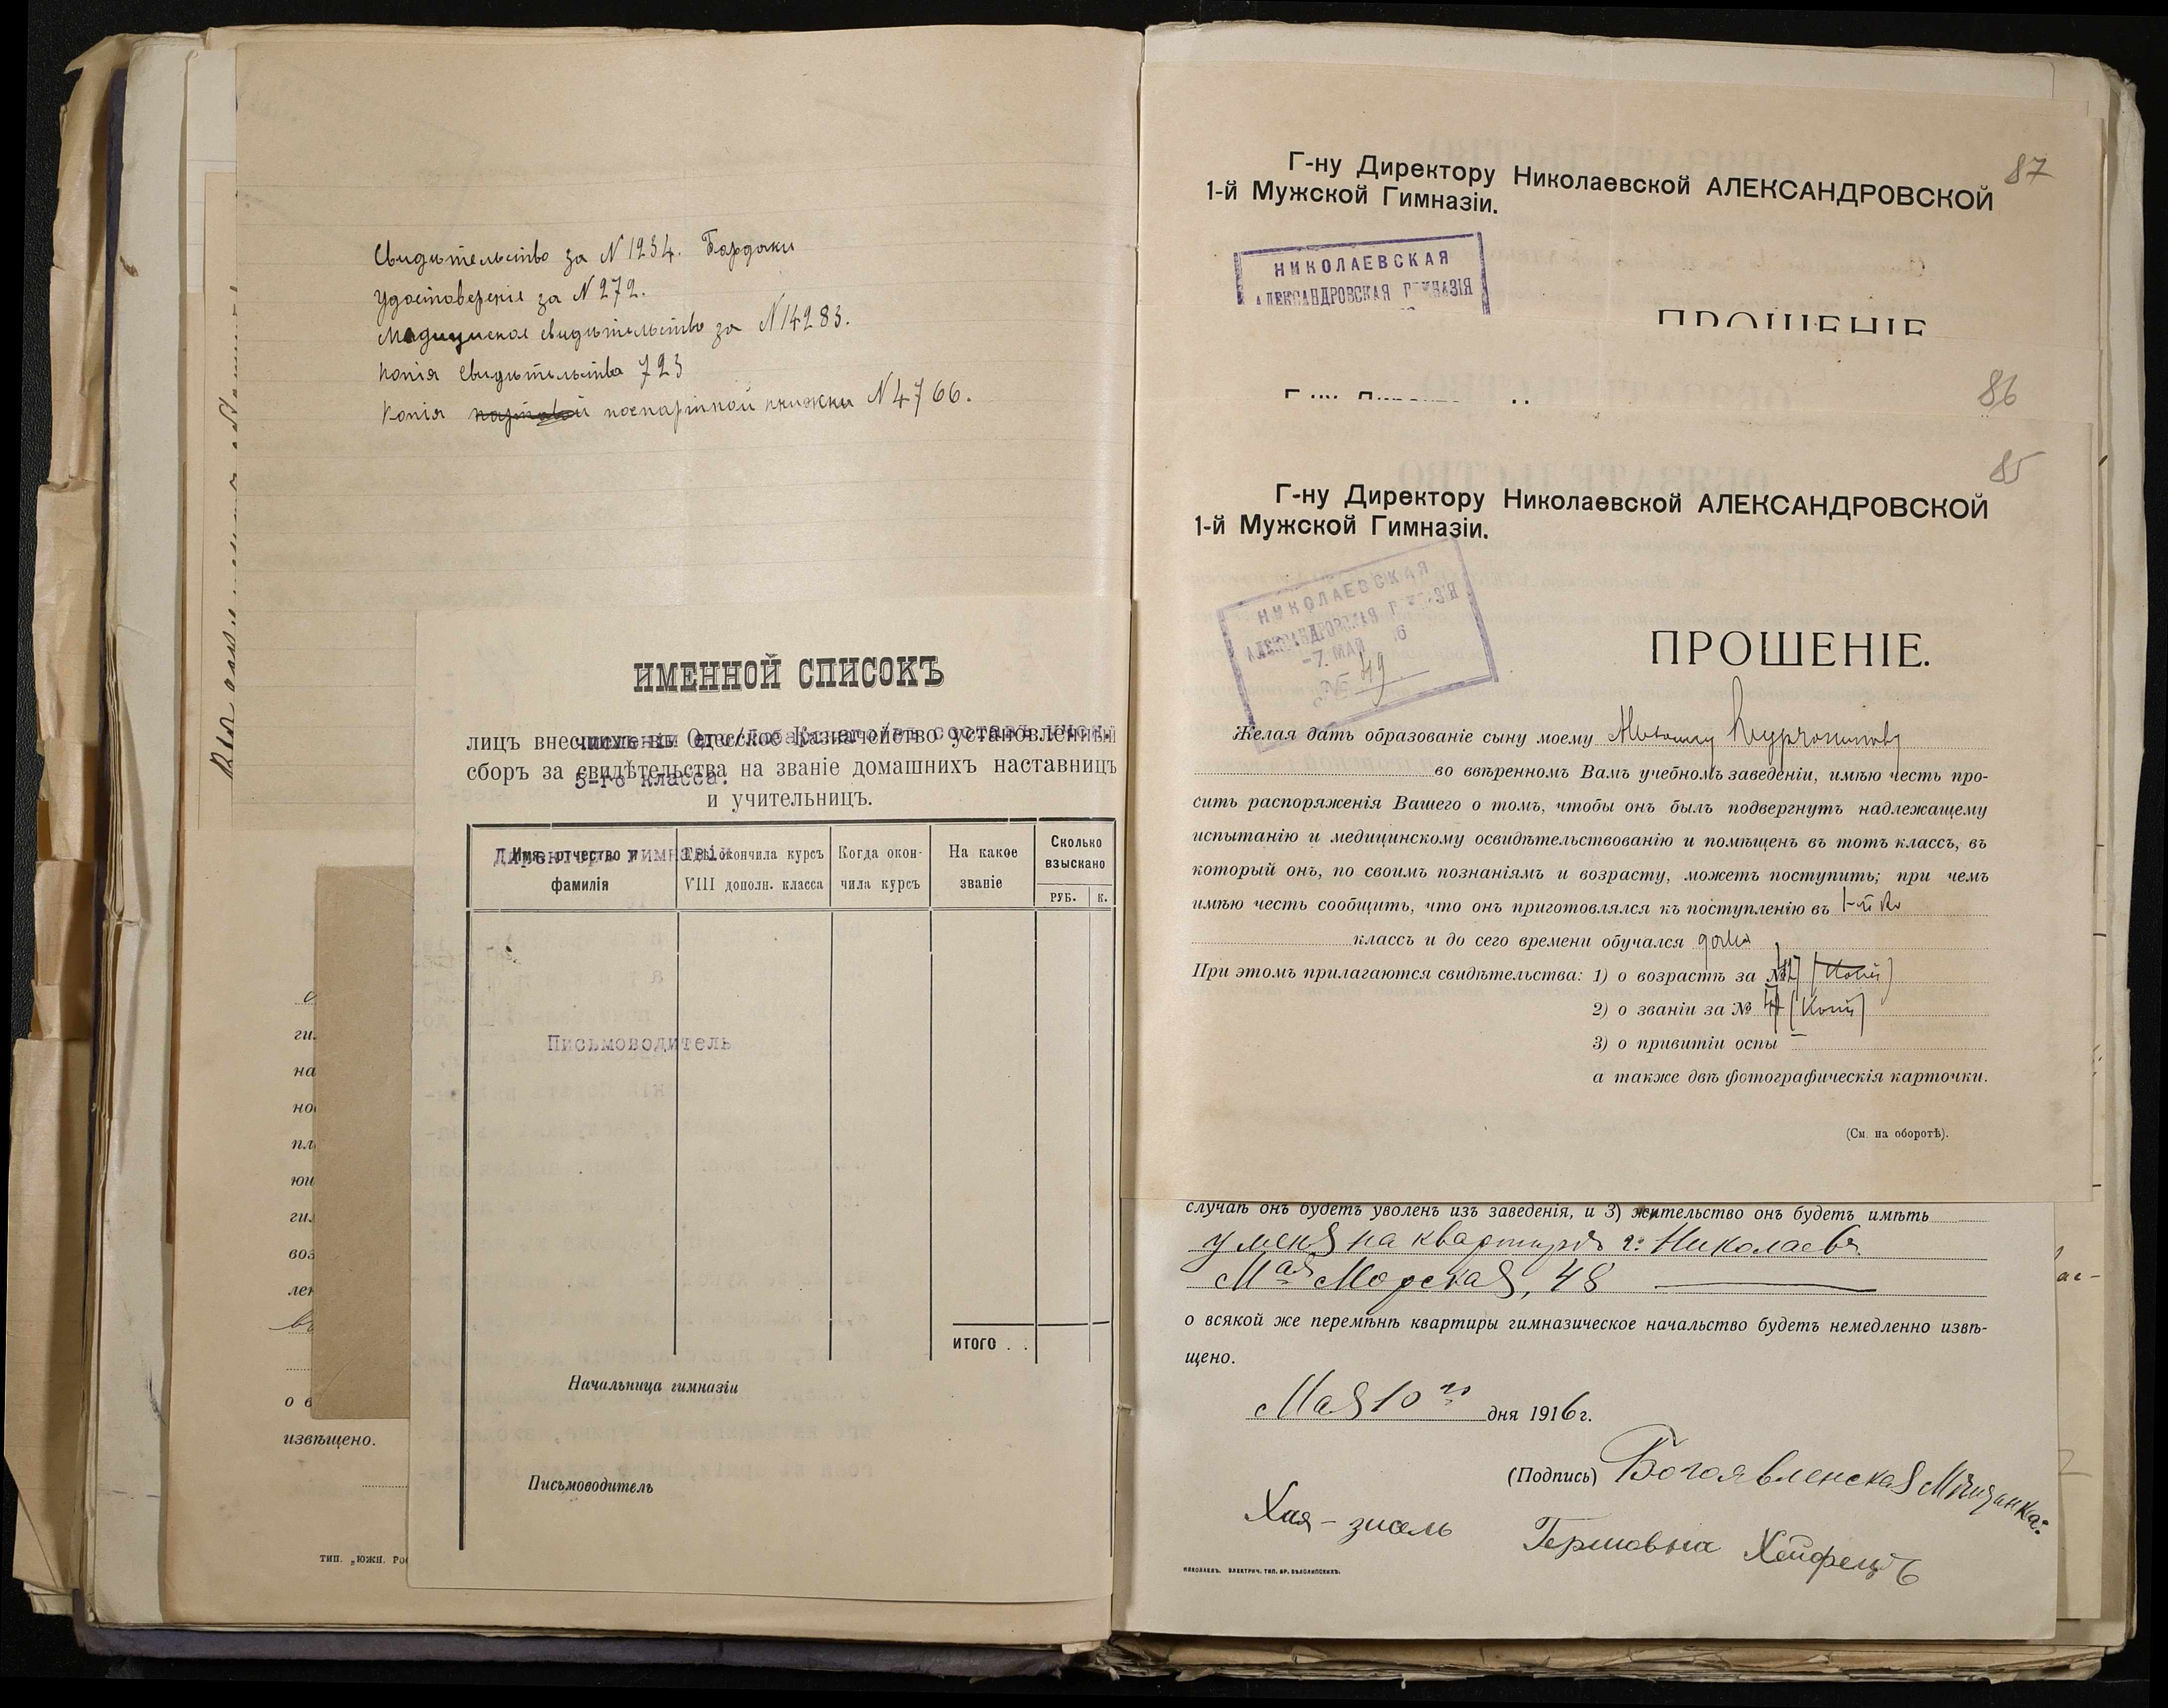 Свидѣтельство за N 1234. Бардаки
Удостоверенiе за N 272.
Медицинское свидѣтельство за N 14283.
Копiя свидѣтельства 723
Копiя паспортной книжки N 4766.
ИМЕННОЙ СПИСОКЪ
лицъ внесшихъ въ Одесское Казначейство установленный
сборъ за свидѣтельства на званiе домашнихъ наставницъ
5-го класса.
и учительницъ.
Директоръ гимназiи
Имя, отчество и фамилiя
Гдѣ окончила курсъ VIII дополн. класса
Когда окон- чила курсъ
На какое званiе
Сколько взыскано
РУБ. К.
Письмоводитель
ИТОГО . .
Начальница гимназiи
Письмоводитель
ги
на
но
пл
юи
ги
воз
лен
о в
извѣщено.
тип. „южн. Ро
87
Г-ну Директору Николаевской АЛЕКСАНДРОВСКОЙ
1-й Мужской Гимназiи.
НИКОЛАЕВСКАЯ
АЛЕКСАНДРОВСКАЯ ГИМНАЗIЯ
ПРОШЕНIЕ
86
85
Г-ну Директору Николаевской АЛЕКСАНДРОВСКОЙ
1-й Мужской Гимназiи.
НИКОЛАЕВСКАЯ
АЛЕКСАНДРОВСКАЯ ГИМНАЗIЯ
-7. МАЯ 16
№ 49
ПРОШЕНIЕ.
Желая дать образованiе сыну моему
во ввѣренномъ Вамъ учебномъ заведенiи, имѣю честь про-
сить распоряженiя Вашего о томъ, чтобы онъ былъ подвергнутъ надлежащему
испытанiю и медицинскому освидѣтельствованiю и помѣщенъ въ тотъ классъ, въ
который онъ, по своимъ познанiямъ и возрасту, можетъ поступить; при чемъ
имѣю честь сообщить, что онъ приготовлялся къ поступленiю въ 1-й
классъ и до сего времени обучался дома
При этомъ прилагаются свидѣтельства: 1) о возрастѣ за №
2) о званiи за № (Копiя)
3) о привитiи оспы —
а также двѣ фотографическiя карточки.
(См. на оборотѣ).
случаѣ онъ будетъ уволенъ изъ заведенiя, и 3) жительство онъ будетъ имѣть
у меня на квартирѣ г. Николаевъ
Мая Морская, 48
о всякой же перемѣнѣ квартиры гимназическое начальство будетъ немедленно извѣ-
щено.
Мая 10го дня 1916 г.
(Подпись) Богоявленская Мѣщанка:
Хая-зисель Гершовна Хейфецъ
НИКОЛАЕВЪ. ЭЛЕКТРИЧ. ТИП. БР. БѢЛОЛИПСКИХЪ.